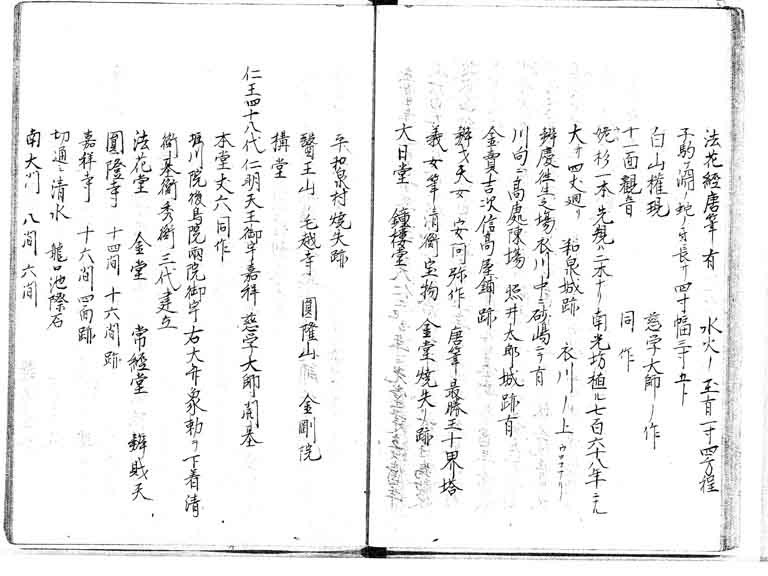 法花經唐筆有　水火ノ玉有一寸四方程
子駒ヶ渕ノ蛇ノ牙長サ四寸幅三寸五卜
白山權現　慈学大師ノ作
十一面觀音　同作
姥杉一本ハ先規ハ二本ナリ南光坊植ル七百六十八年ニ
大サ四丈廻リ　和泉城跡　衣川ノ上
辨慶徃生之場衣川中ニ砂嶋ニテ有
川向ニ高處陳場　照井太郎城跡有
金賣吉次信高屋鋪跡
辨才天女　安阿弥作　唐筆最勝王十界塔
義女筆清衡宝物　金堂焼失ノ跡
大日堂　鐘樓堂
平和泉村焼失跡
醫王山毛越寺　圓隆山　金剛院
構堂
仁王四十八代仁明天王御宇嘉祥慈学大師開基
本堂丈六同作
堀川院後鳥院両院御宇右大弁象勅ヲ下着清
衡基衡秀衡三代建立
法花堂　金堂　常經堂　辨財天
圓隆寺　十四間　十六間跡
嘉祥寺　十六間四面跡
切通ニ清水　龍口池際石
南大門　八間　六間